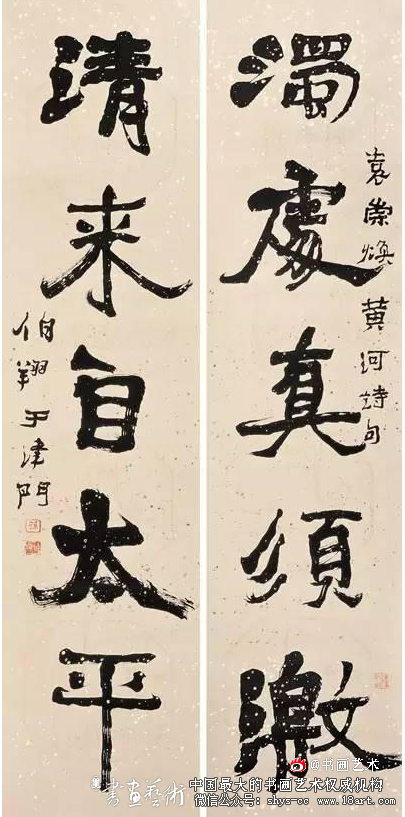 濁處真須激
袁崇煥黄河詩句
清来自太平
伯翔于津門
@书画艺术
書画藝術
中国最大的书画艺术权威机构
微信公众号：shys-cc www.18art.com